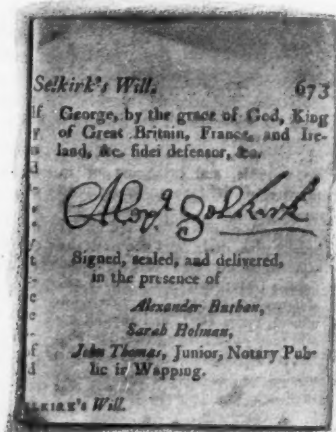 Selkirk's Will. 673
George, by the grace of God, King
of Great Britain, France, and Ire-
land, &c. fidei defensor, &c.
Alexr. Selkirk
Signed, sealed, and delivered,
in the presence of
Alexander Burban,
Sarah Holman,
John Thomas, Junior, Notary Pub-
lic in Wapping.
SELKIRK's Will.